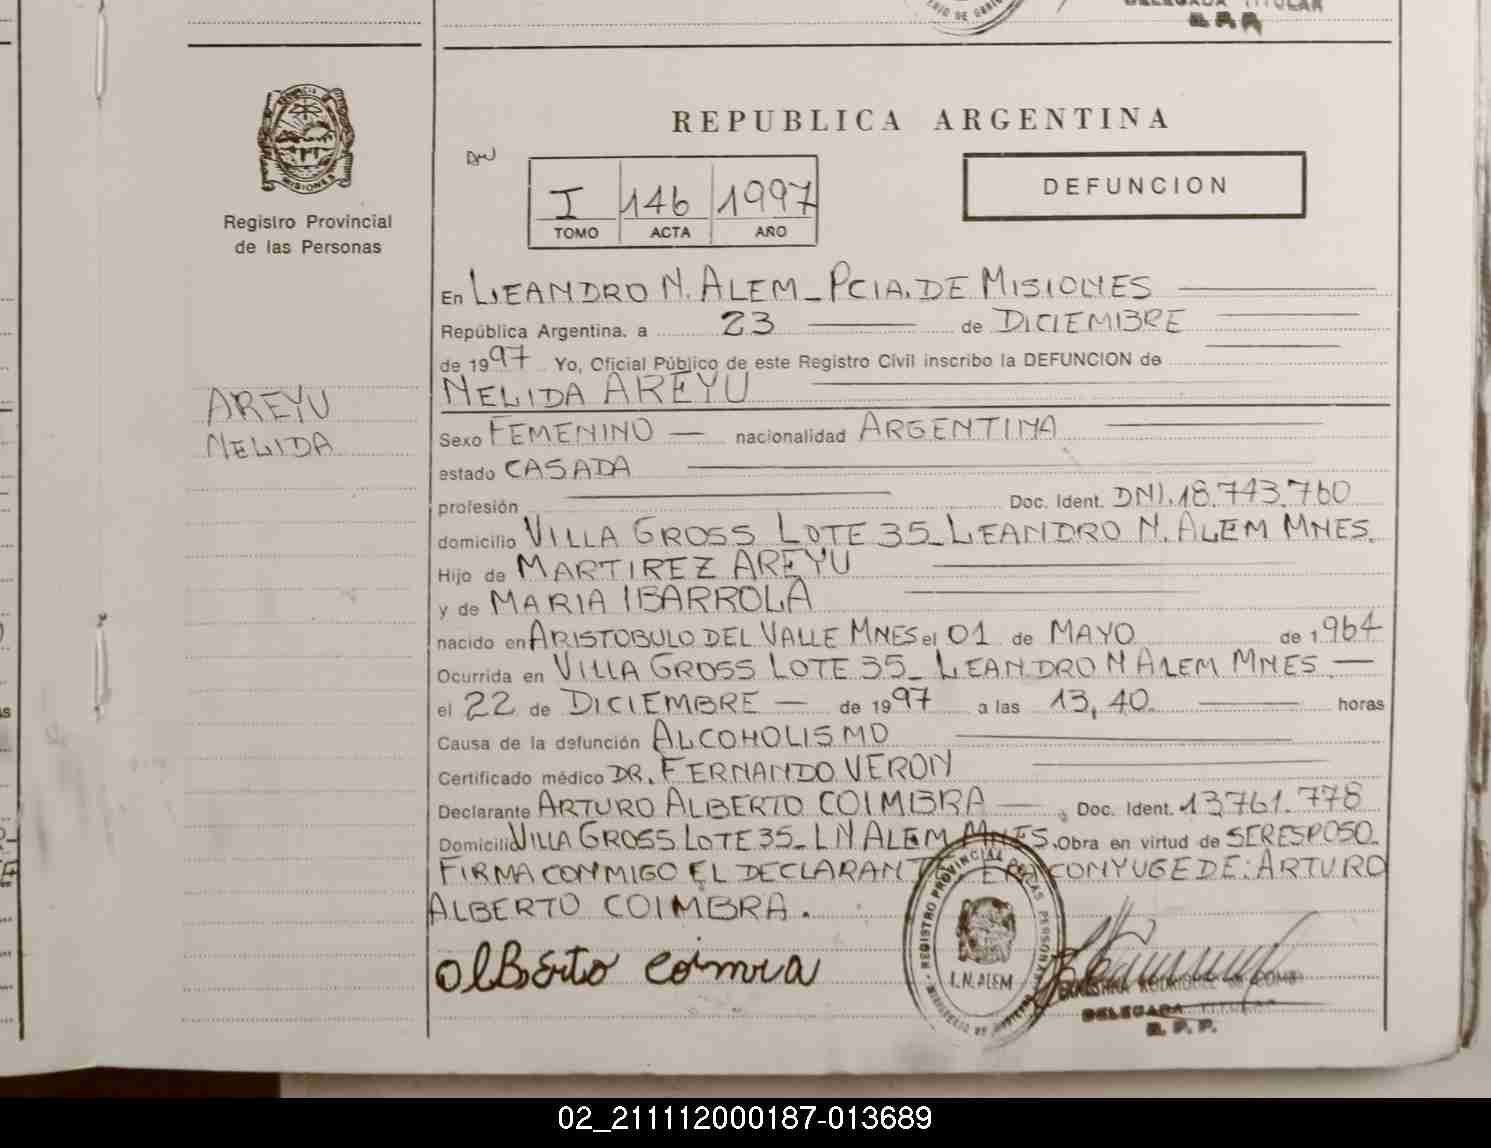 DELEGADA TITULAR
PROVINCIA DE
MISIONES
Registro Provincial
de las Personas
REPUBLICA ARGENTINA
I 146 1997
TOMO ACTA AÑO
DEFUNCION
En LEANDRO N. ALEM_PCIA. DE MISIONES
República Argentina. a 23 de DICIEMBRE
de 1997 Yo, Oficial Público de este Registro Civil inscribo la DEFUNCION de
NELIDA AREYU
AREYU
NELIDA
Sexo FEMENINO — nacionalidad ARGENTINA
estado CASADA
profesión Doc. Ident. DNI.18.743.760
domicilio VILLA GROSS LOTE 35_LEANDRO N. ALEM MNES.
Hijo de MARTIREZ AREYU
y de MARIA IBARROLA
nacido en ARISTOBULO DEL VALLE MNES el 01 de MAYO de 1964
Ocurrida en VILLA GROSS LOTE 35_ LEANDRO N ALEM MNES —
el 22 de DICIEMBRE — de 1997 a las 13,40 horas
Causa de la defunción ALCOHOLISMO
Certificado médico DR. FERNANDO VERON
Declarante ARTURO ALBERTO COIMBRA — , Doc. Ident. 13761.778
Domicilio VILLA GROSS LOTE 35_ L N ALEM MNES. Obra en virtud de SER ESPOSO_
FIRMA CONMIGO EL DECLARANTE ERA CONYUGE DE: ARTURO
ALBERTO COIMBRA.
alBerto coimvra
REGISTRO PROVINCIAL DE LAS PERSONAS
L.N.ALEM
RODRIGUEZ DE
DELEGADA TITULAR
R. P. P.
02_211112000187-013689